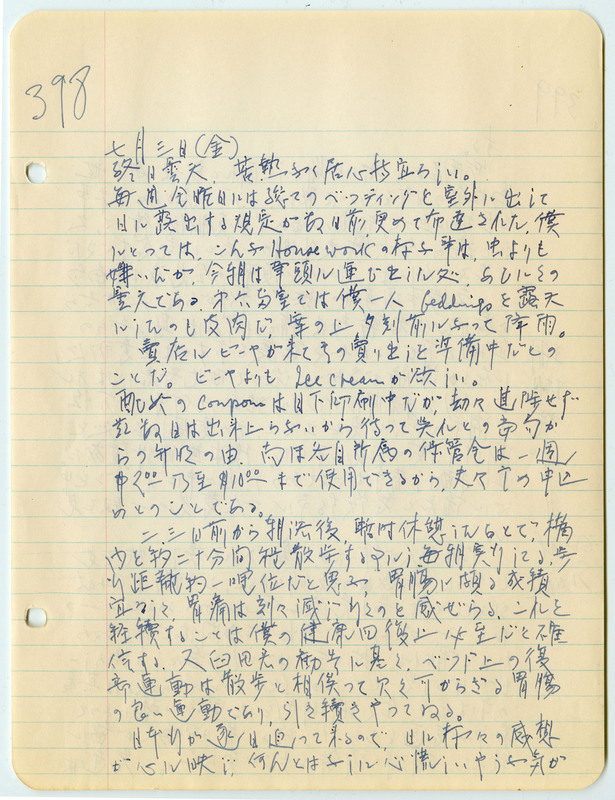 398
七月三日(金)
終日曇天、苦熱なく居心持宜らしい。
毎週金曜日には総てのベッディングを室外に出して
日に曝出する規定が数日前、更めて布達された。僕
にとっては、こんな House work の様な事は、虫よりも
嫌いだが、今朝は率頭に運び出した処、あしにくの
曇天である。第六号室では僕一人 beddings を露天
にしたのも皮肉だ、案の上夕刻前になって降雨。
売店にビーヤが来てその売り出しを準備中だとの
ことだ。ビーヤよりも Ice cream が欲しい。
配給の coupon は目下印刷中だが、劫々進捗せず
数日は出来上らないから待って呉れとの
の由、尚ほ各自所属の保管金は一週
2.00 乃至月10.00 まで使用できるから、夫々その申込
めとのことである。
二、三日前から朝浴後、暫時休憩したあとで、構
内を約二十分間程散歩する事にし毎朝実行してる。歩
行距離約一哩位だと思ふ、胃腸に頗る成績
宜ろしく、胃痛は刻々減じ行くのを感ぜらる、これを
継続することは僕の健康回復上必至だと確
信する。又臼田君の勧告に基く、ベッド上の後
部運動は散歩と相俟って欠く可からざる胃腸
の良い運動であり、引き続きやってゐる。
日本行が逐日迫って来るので、日に様々の感想
が心に映じ、何んとはなしに心慌しいやうな気が